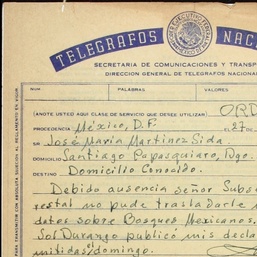 TELEGRAFOS NAC
SECRETARIA DE COMUNICACIONES Y TRANSP
DIRECCION GENERAL DE TELEGRAFOS NACIONAL
NUM. PALABRAS VALORES
(ANOTE USTED AQUI LA CLASE DE SERVICIO QUE DESEE UTILIZAR) ORD
PROCEDENCIA México, D.F. a 27 de
Sr. José María Martínez Sida.
DOMICILIO Santiago Papasquiaro, Dgo.
DESTINO Domicilio Conocido.
Debido ausencia señor Subse
restal no pude trasladarle
datos sobre Bosques Mexicanos.
Sol Durango publicó mis decla
mitidas el domingo.
PARA TRANSMITIR CON ABSOLUTA SUJECION AL REGLAMENTO EN VIGOR